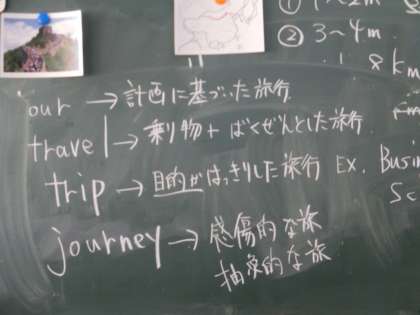 ① 1~2m
② 3~4m
8km
our → 計画に基づいた旅行
travel → 乗り物+ばくぜんとした旅行
trip → 目的がはっきりした旅行 EX. Busi
Sc
journey → 感傷的な旅
抽象的な旅